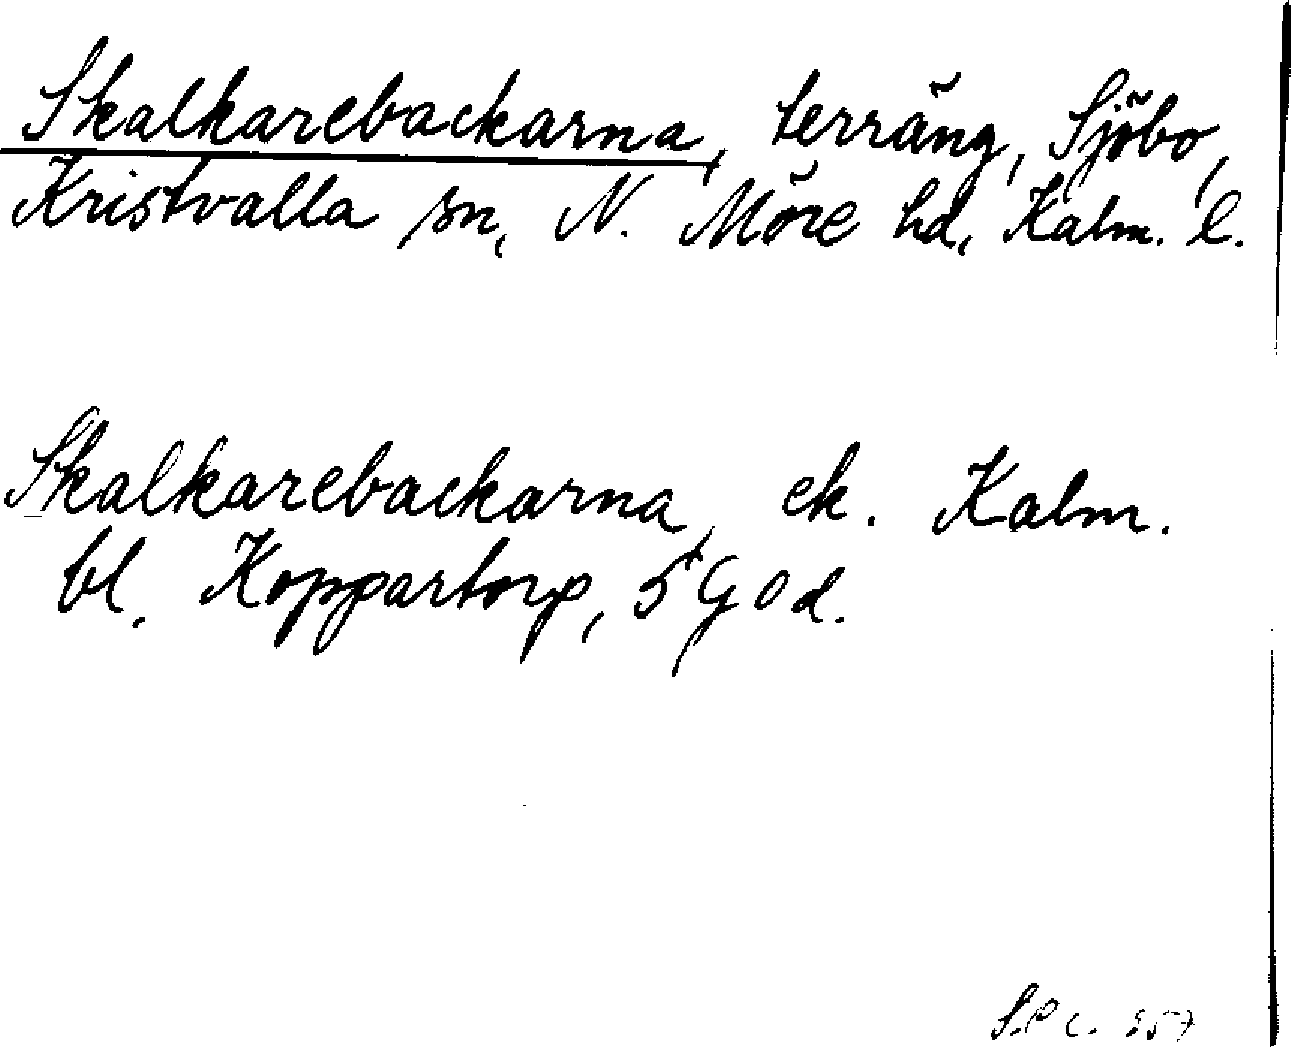 Skalkarebackarna, terräng, Sjöbo,
Kristvalla sn, N. Möre hd, Kalm. l.
Skalkarebackarna, ek. Kalm.
bl. Koppartorp, 5 G o d.